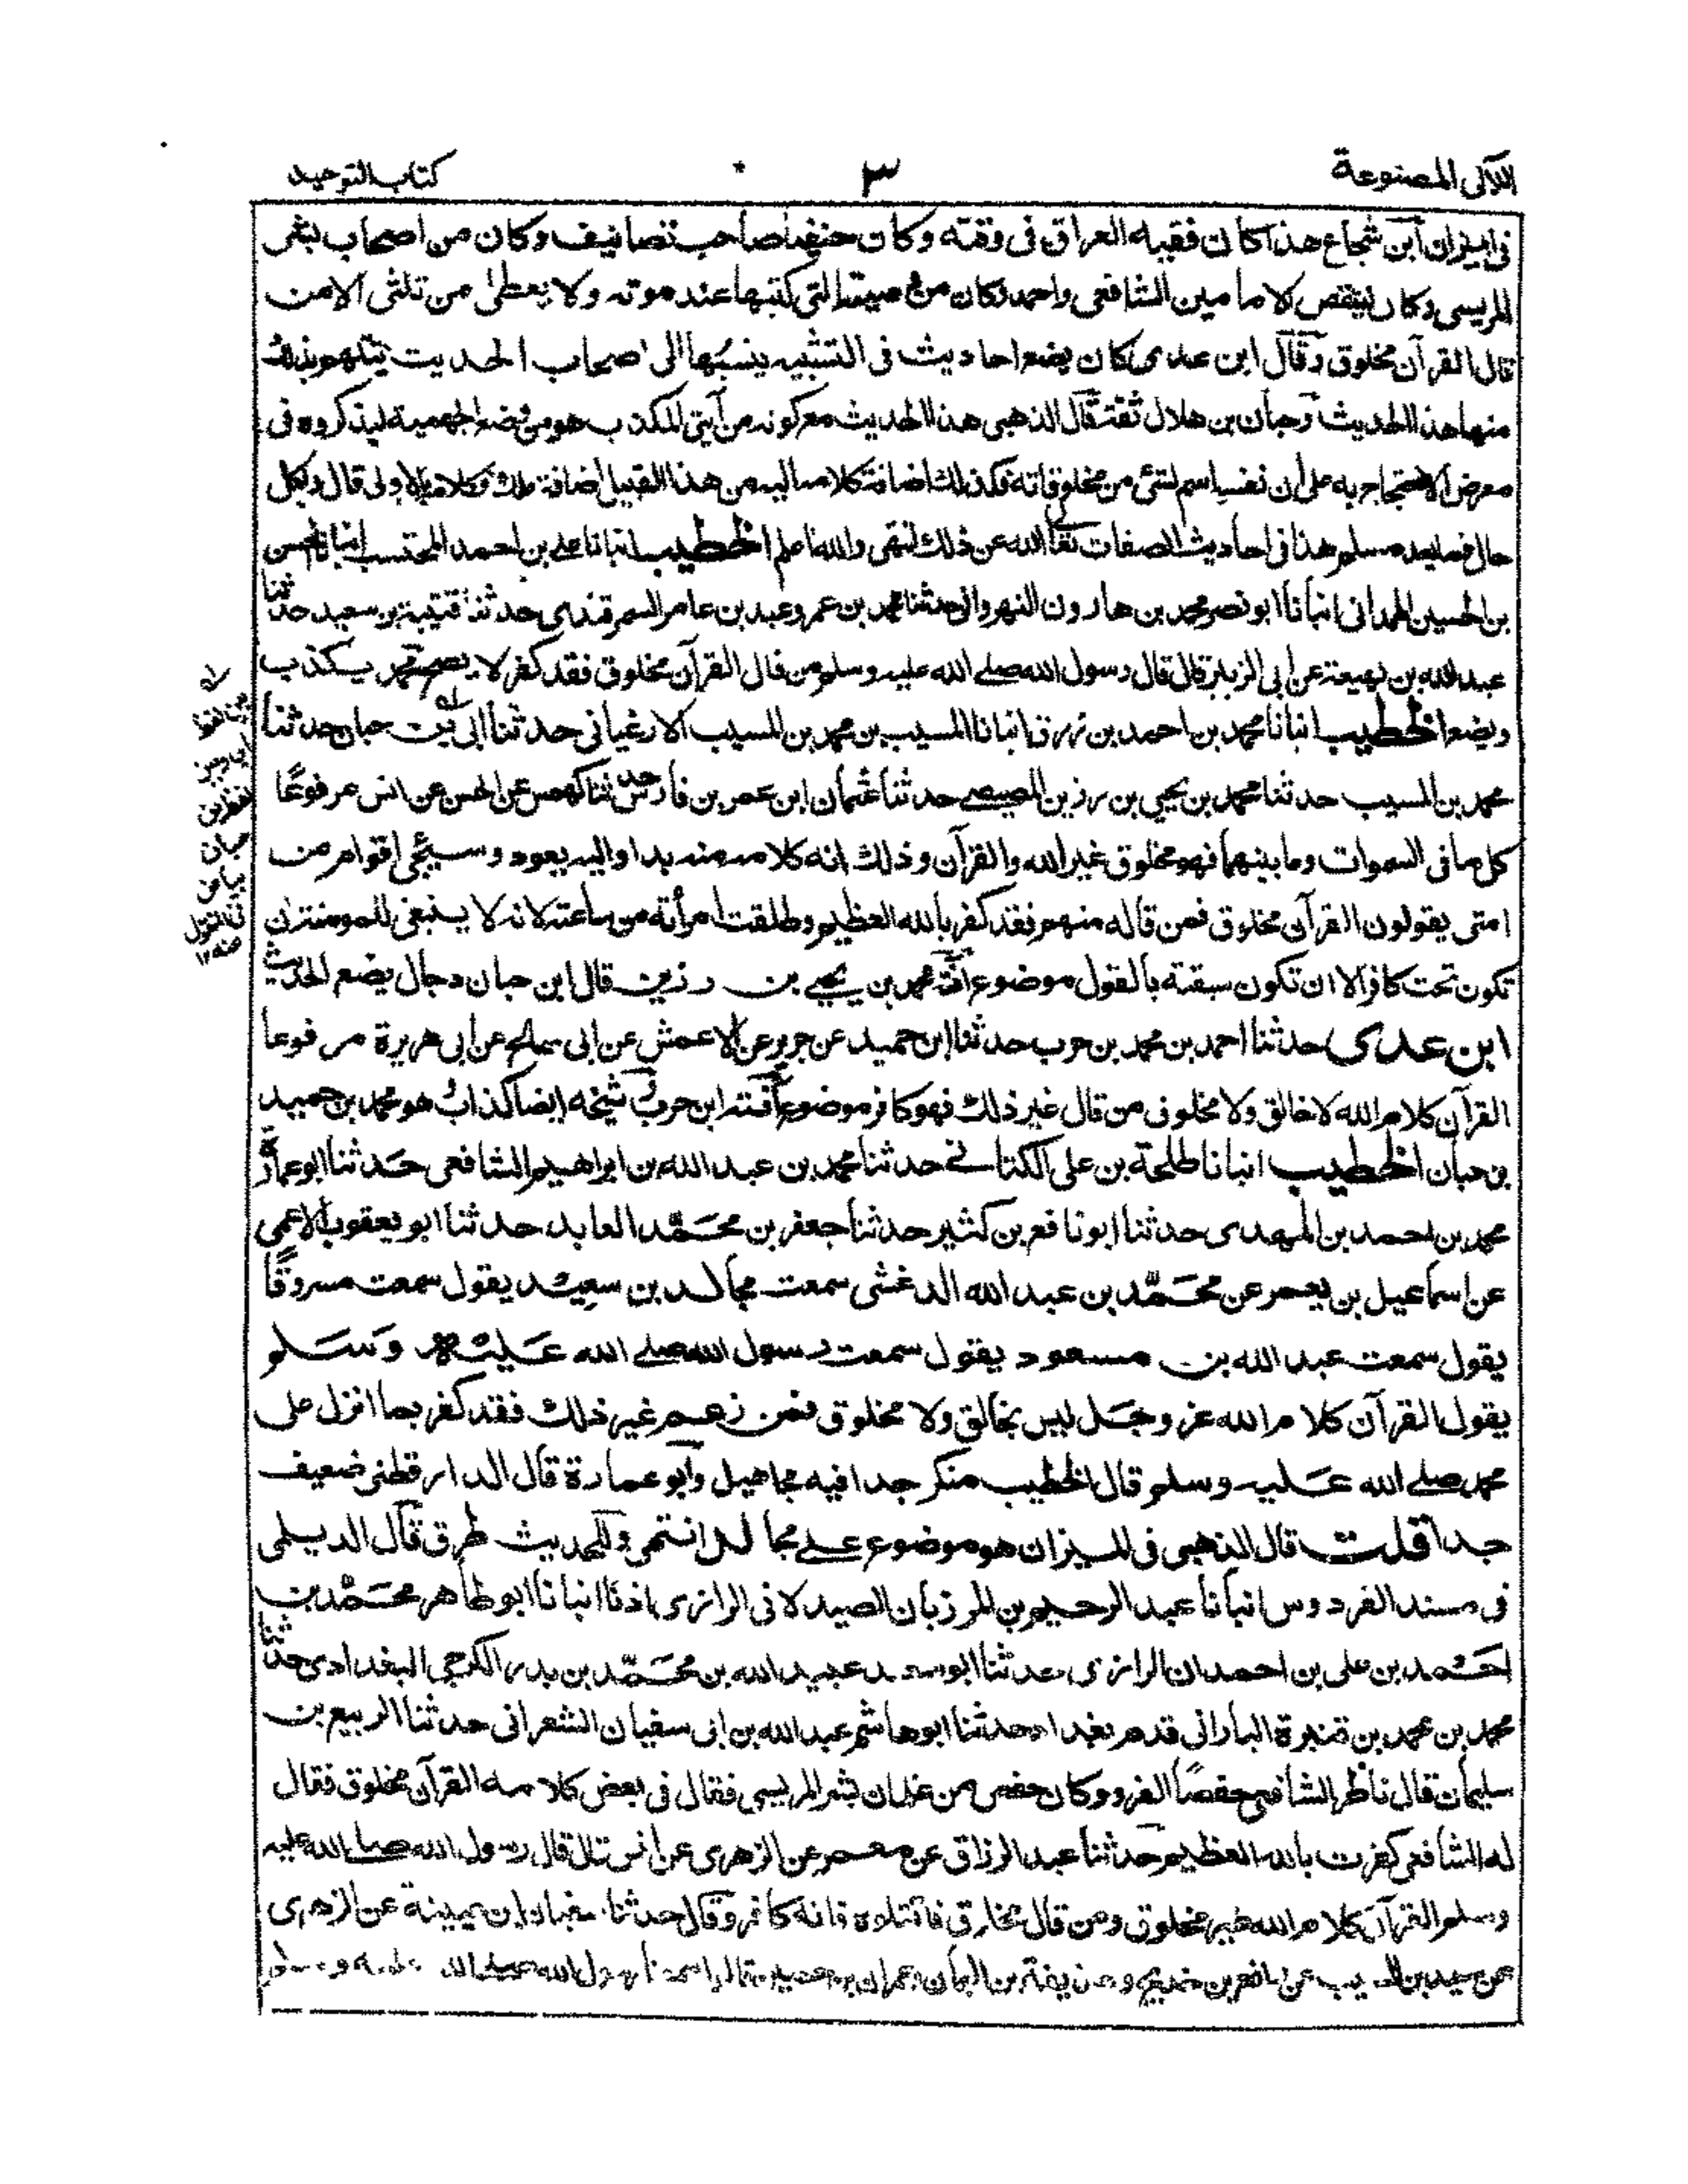 اللآلى المصنوعة
٣
كتاب التوحيد
فى الميزان ابن شجاع هذا كان فقيه العراق فى وقته وكان حنفيا صاحب تصانيف وكان من اصحاب بشر
المريسى وكان ينتقص الامامين الشافعى واحمد وكان من وصيته التى كتبها عند موته ولا يعطى من ثلثى الا من
قال القرآن مخلوق وقال ابن عدى كان يضع احاديث فى التشبيه ينسبها الى اصحاب الحديث يثلبهم بذلك
منها هذا الحديث وحبان بن هلال ثقة قال الذهبى هذا الحديث مع كونه من ابين الكذب هو من وضع الجهمية ليذكروه فى
معرض الاحتجاج به على ان نفسه اسم لشئ من مخلوقاته فكذلك اضافة كلامه اليه من هذا القبيل اضافة ملك وكلام بالاولى قال وبكل
حال فما يعد مسلم هذا فى احاديث الصفات تعالى الله عن ذلك انتهى والله اعلم الخطيب انبانا على بن احمد المحتسب انبانا الحسن
بن الحسين الهمدانى انبأنا ابو نصر محمد بن هارون النهروانى حدثنا محمد بن عمرو عبد بن عامر السمرقندى حدثنا قتيبة بن سعيد حدثنا
عبد الله بن لهيعة عن ابى الزبير قال قال رسول الله صلے الله عليه وسلم من قال القرآن مخلوق فقد كفر لا يصح محمد يكذب
ويضع الخطيب انبانا محمد بن احمد بن رزق انبانا المسيب بن محمد بن المسيب الارغيانى حدثنا ابى حبان حدثنا
محمد بن المسيب حدثنا محمد بن يحيى بن رزين المصيصے حدثنا عثمان ابن عمر بن فارس حدثنا كهمس عن الحسن عن انس مرفوعًا
كل ما فى السموات وما بينهما فهو مخلوق غير الله والقرآن وذلك انه كلامه منه بدا واليه يعود وسيجئ اقوام من
امتى يقولون القرآن مخلوق فمن قاله منهم فقد كفر بالله العظيم وطلقت امرأته من ساعته لانه لا ينبغى للمومنة ان
تكون تحت كافر الا ان تكون سبقته بالقول موضوع آفته محمد بن يحيے بن رزين قال ابن حبان دجال يضع الحديث
ابن عدى حدثنا احمد بن محمد بن حرب حدثنا ابن حميد عن جرير عن الاعمش عن ابى صالح عن ابى هريرة مرفوعا
القرآن كلام الله لا خالق ولا مخلوق من قال غير ذلك فهو كافر موضوع آفته ابن حرب وشيخه ايضا كذاب هو محمد بن حميد
بن حبان الخطيب انبانا طلحة بن على الكتانے حدثنا محمد بن عبد الله بن ابراهيم الشافعى حدثنا ابو عمارة
محمد بن احمد بن المهدى حدثنا ابو نافع بن كثير حدثنا جعفر بن محمّد العابد حدثنا ابو يعقوب الاعمى
عن اسماعيل بن يعمر عن محمّد بن عبد الله الدغشى سمعت مجالد بن سعيد يقول سمعت مسروقًا
يقول سمعت عبد الله بن مسعود يقول سمعت رسول الله صلے الله عليه وسلم
يقول القرآن كلام الله عز وجل ليس بخالق ولا مخلوق فمن زعم غير ذلك فقد كفر بما انزل على
محمد صلے الله عليه وسلم قال الخطيب منكر جدا فيه مجاهيل وابو عمارة قال الدارقطنى ضعيف
جدا قلت قال الذهبى فى الميزان هو موضوع علے مجالد انتهى وللحديث طرق قال الديلمى
فى مسند الفردوس انبأنا عبد الرحيم بن المرزبان الصيدلانى الرازى اذنا انبانا ابو طاهر محمّد بن
احمد بن على بن احمدان الرازى حدثنا ابو سعد عبيد الله بن محمّد بن بدر الكرجى البغدادى حدثنا
محمد بن محمد بن قنبرة البارانى قدم بغداد حدثنا ابو هاشم عبد الله بن ابى سفيان الشعرانى حدثنا الربيع بن
سليمان قال ناظر الشافعى حفصًا الفرد وكان حفص من غلمان بشر المريسى فقال فى بعض كلامه القرآن مخلوق فقال
له الشافعى كفرت بالله العظيم حدثنا عبد الرزاق عن معمر عن الزهرى عن انس قال قال رسول الله صلے الله عليه
وسلم القرآن كلام الله غير مخلوق ومن قال مخلوق فاقتلوه فانه كافر وقال حدثنا سفيان ابن عيينة عن الزهرى
عن سعيد بن المسيب عن رافع بن خديج وحذيفة بن اليمان وعمران بن حصين قالوا سمعنا رسول الله صلے الله عليه وسلم